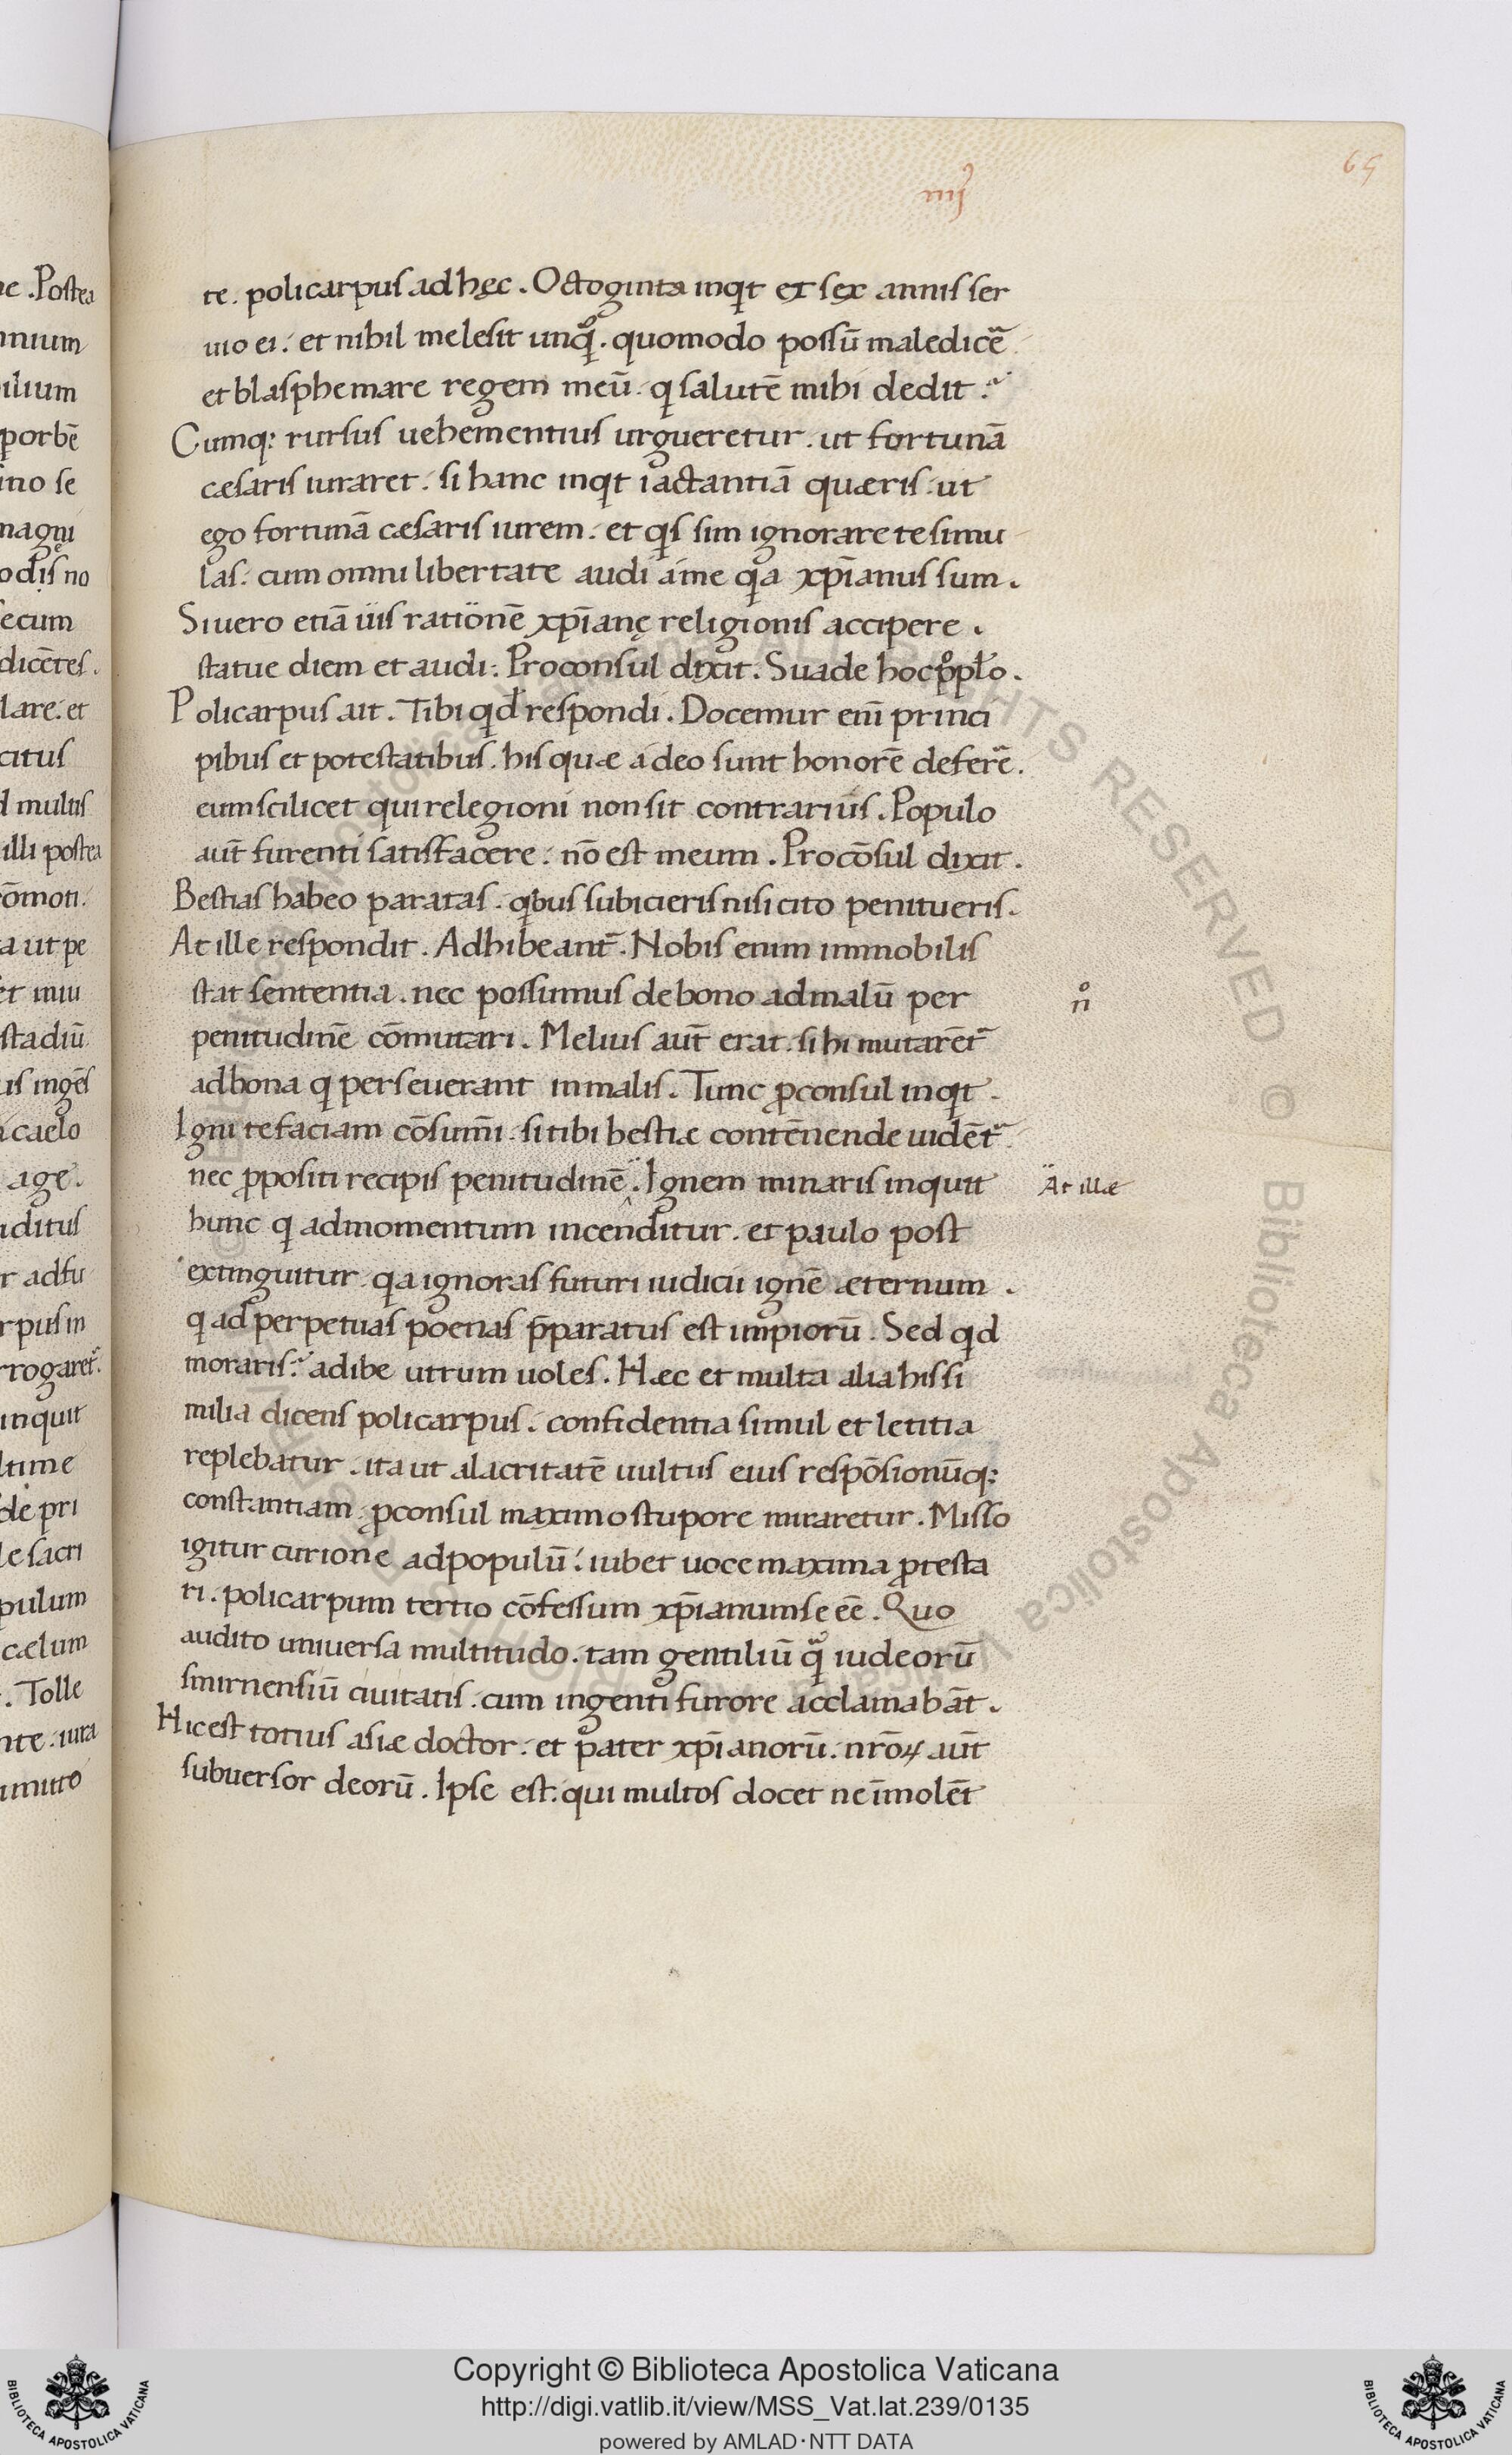 iiij
65
te. policarpus ad hęc. Octoginta inqt et sex annis ser
uio ei. et nihil me lesit unq̊. quomodo possū maledicē
et blasphemare regem meū. q salutē mihi dedit.
Cumq: rursus uehementius urgueretur. ut fortunā
cæsaris iuraret. si hanc inqt iactantiā quæris. ut
ego fortunā cæsaris iurem. et qs sim ignorare te simu
las. cum omni libertate audi a me qa xp̄ianus sum.
Si uero etiā uis rationē xp̄ianę religionis accipere.
statue diem et audi. Proconsul dixit. Suade hoc p̊plo.
Policarpus ait. Tibi qd respondi. Docemur eni princi
pibus et potestatibus. his quæ a deo sunt honorē deferē.
eum scilicet qui relegioni non sit contrarius. Populo
aut̄ furenti satisfacere. nō est meum. Procōsul dixit.
Bestias habeo paratas. qbus subicieris nisi cito penitueris.
At ille respondit. Adhibeant̄. Nobis enim immobilis
stat sententia. nec possumus de bono ad malū per
n̊
penitudinē cōmutari. Melius aut̄ erat. si hi mutarēt̄
ad bona q perseuerant in malis. Tunc ꝓconsul inqt.
Igni te faciam cōsumi. si tibi bestiæ contēnende uidēt̄
nec ꝓpositi recipis penitudinē. Ignem minaris inquit
At illæ
hunc q ad momentum incenditur. et paulo post
extinguitur qa ignoras futuri iudicii ignē æternum.
q ad perpetuas poenas p̄paratus est impiorū. Sed qd
moraris. adibe utrum uoles. Hæc et multa alia his si
milia dicens policarpus. confidentia simul et letitia
replebatur. ita ut alacritatē uultus eius respōsionūq:
constantiam ꝓconsul maximo stupore miraretur. Misso
igitur curione ad populū. iubet uoce maxima ꝓtesta
ri. policarpum tertio cōfessum xp̄ianum se eē. Quo
audito uniuersa multitudo. tam gentiliū q̄ iudeorū
smirnensiū ciuitatis. cum ingenti furore acclamabāt.
Hic est totius asiæ doctor. et pater xp̄ianorū. nr̄oꝝ aut̄
subuersor deorū. Ipse est. qui multos docet ne īmolēt
Copyright © Biblioteca Apostolica Vaticana
http://digi.vatlib.it/view/MSS_Vat.lat.239/0135
powered by AMLAD·NTT DATA